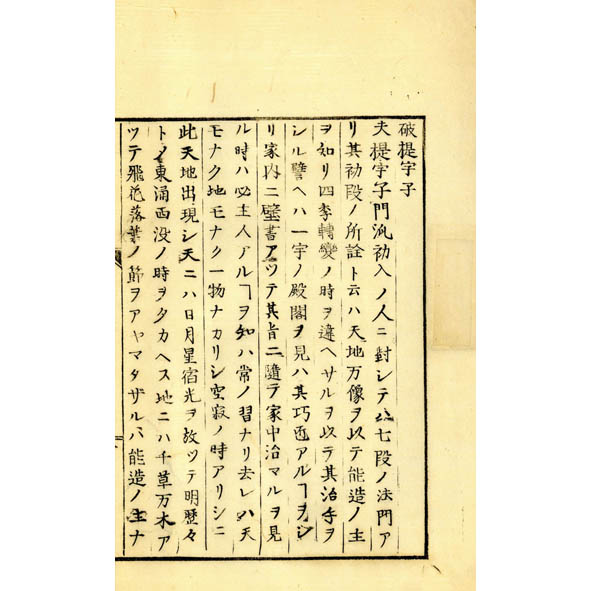 破提宇子
夫提宇子門派初入ノ人ニ對シテハ七段ノ法門ア
リ其初段ノ所詮ト云ハ天地万像ヲ以テ能造ノ主
ヲ知リ四季轉變ノ時ヲ違ヘサルヲ以テ其治手ヲ
シル譬ヘハ一宇ノ殿閣ヲ見ハ其巧匠アルヿヲシ
リ家内ニ壁書アツテ其旨ニ隨テ家中治マルヲ見
ル時ハ必主人アルヿヲ知ハ常ノ習ナリ去レハ天
モナク地モナク一物ナカリシ空寂ノ時アリシニ
此天地出現シ天ニハ日月星宿光ヲ放ツテ明歴々
トノ東涌西没ノ時ヲタカヘス地ニハ千草万木ア
ツテ飛花落葉ノ節ヲアヤマタザルハ能造ノ主ナ